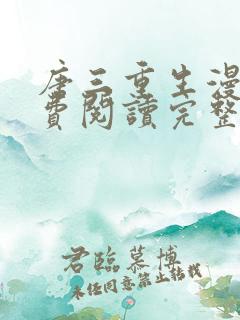 唐三重生漫
費閱讀完整
君臨慕博
未经同意禁止转载